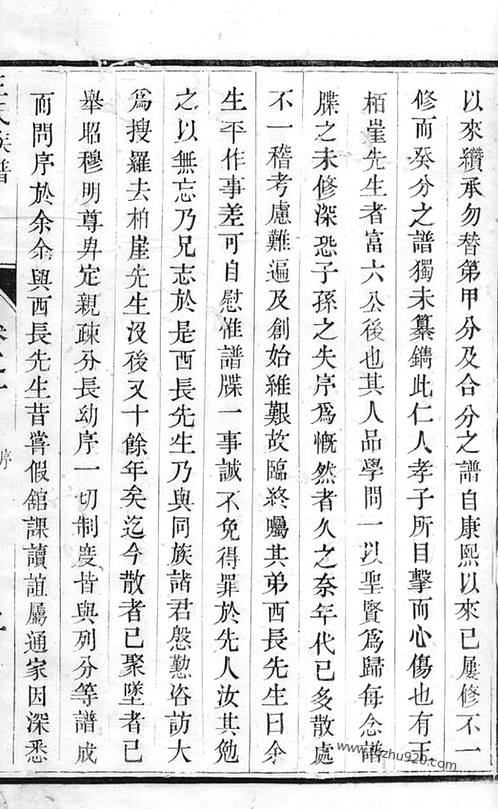 以來纘承勿替第甲分及合分之譜自康熙以來已屢修不一
修而癸分之譜獨未纂鐫此仁人孝子所目擊而心傷也有王
栢崖先生者富六公後也其人品學問一以聖賢爲歸每念譜
牒之未修深恐子孫之失序爲慨然者久之奈年代已多散處
不一稽考慮難遍及創始維艱故臨終囑其弟酉長先生曰余
生平作事差可自慰惟譜牒一事誠不免得罪於先人汝其勉
之以無忘乃兄志於是酉長先生乃與同族諸君慇懃咨訪大
爲搜羅去柏崖先生沒後又十餘年矣迄今散者已聚墜者已
舉昭穆明尊卑定親疎分長幼序一切制度皆與列分等譜成
而問序於余余與酉長先生昔嘗假舘課讀誼屬通家因深悉
王氏族譜
序
www.jizhu920.com